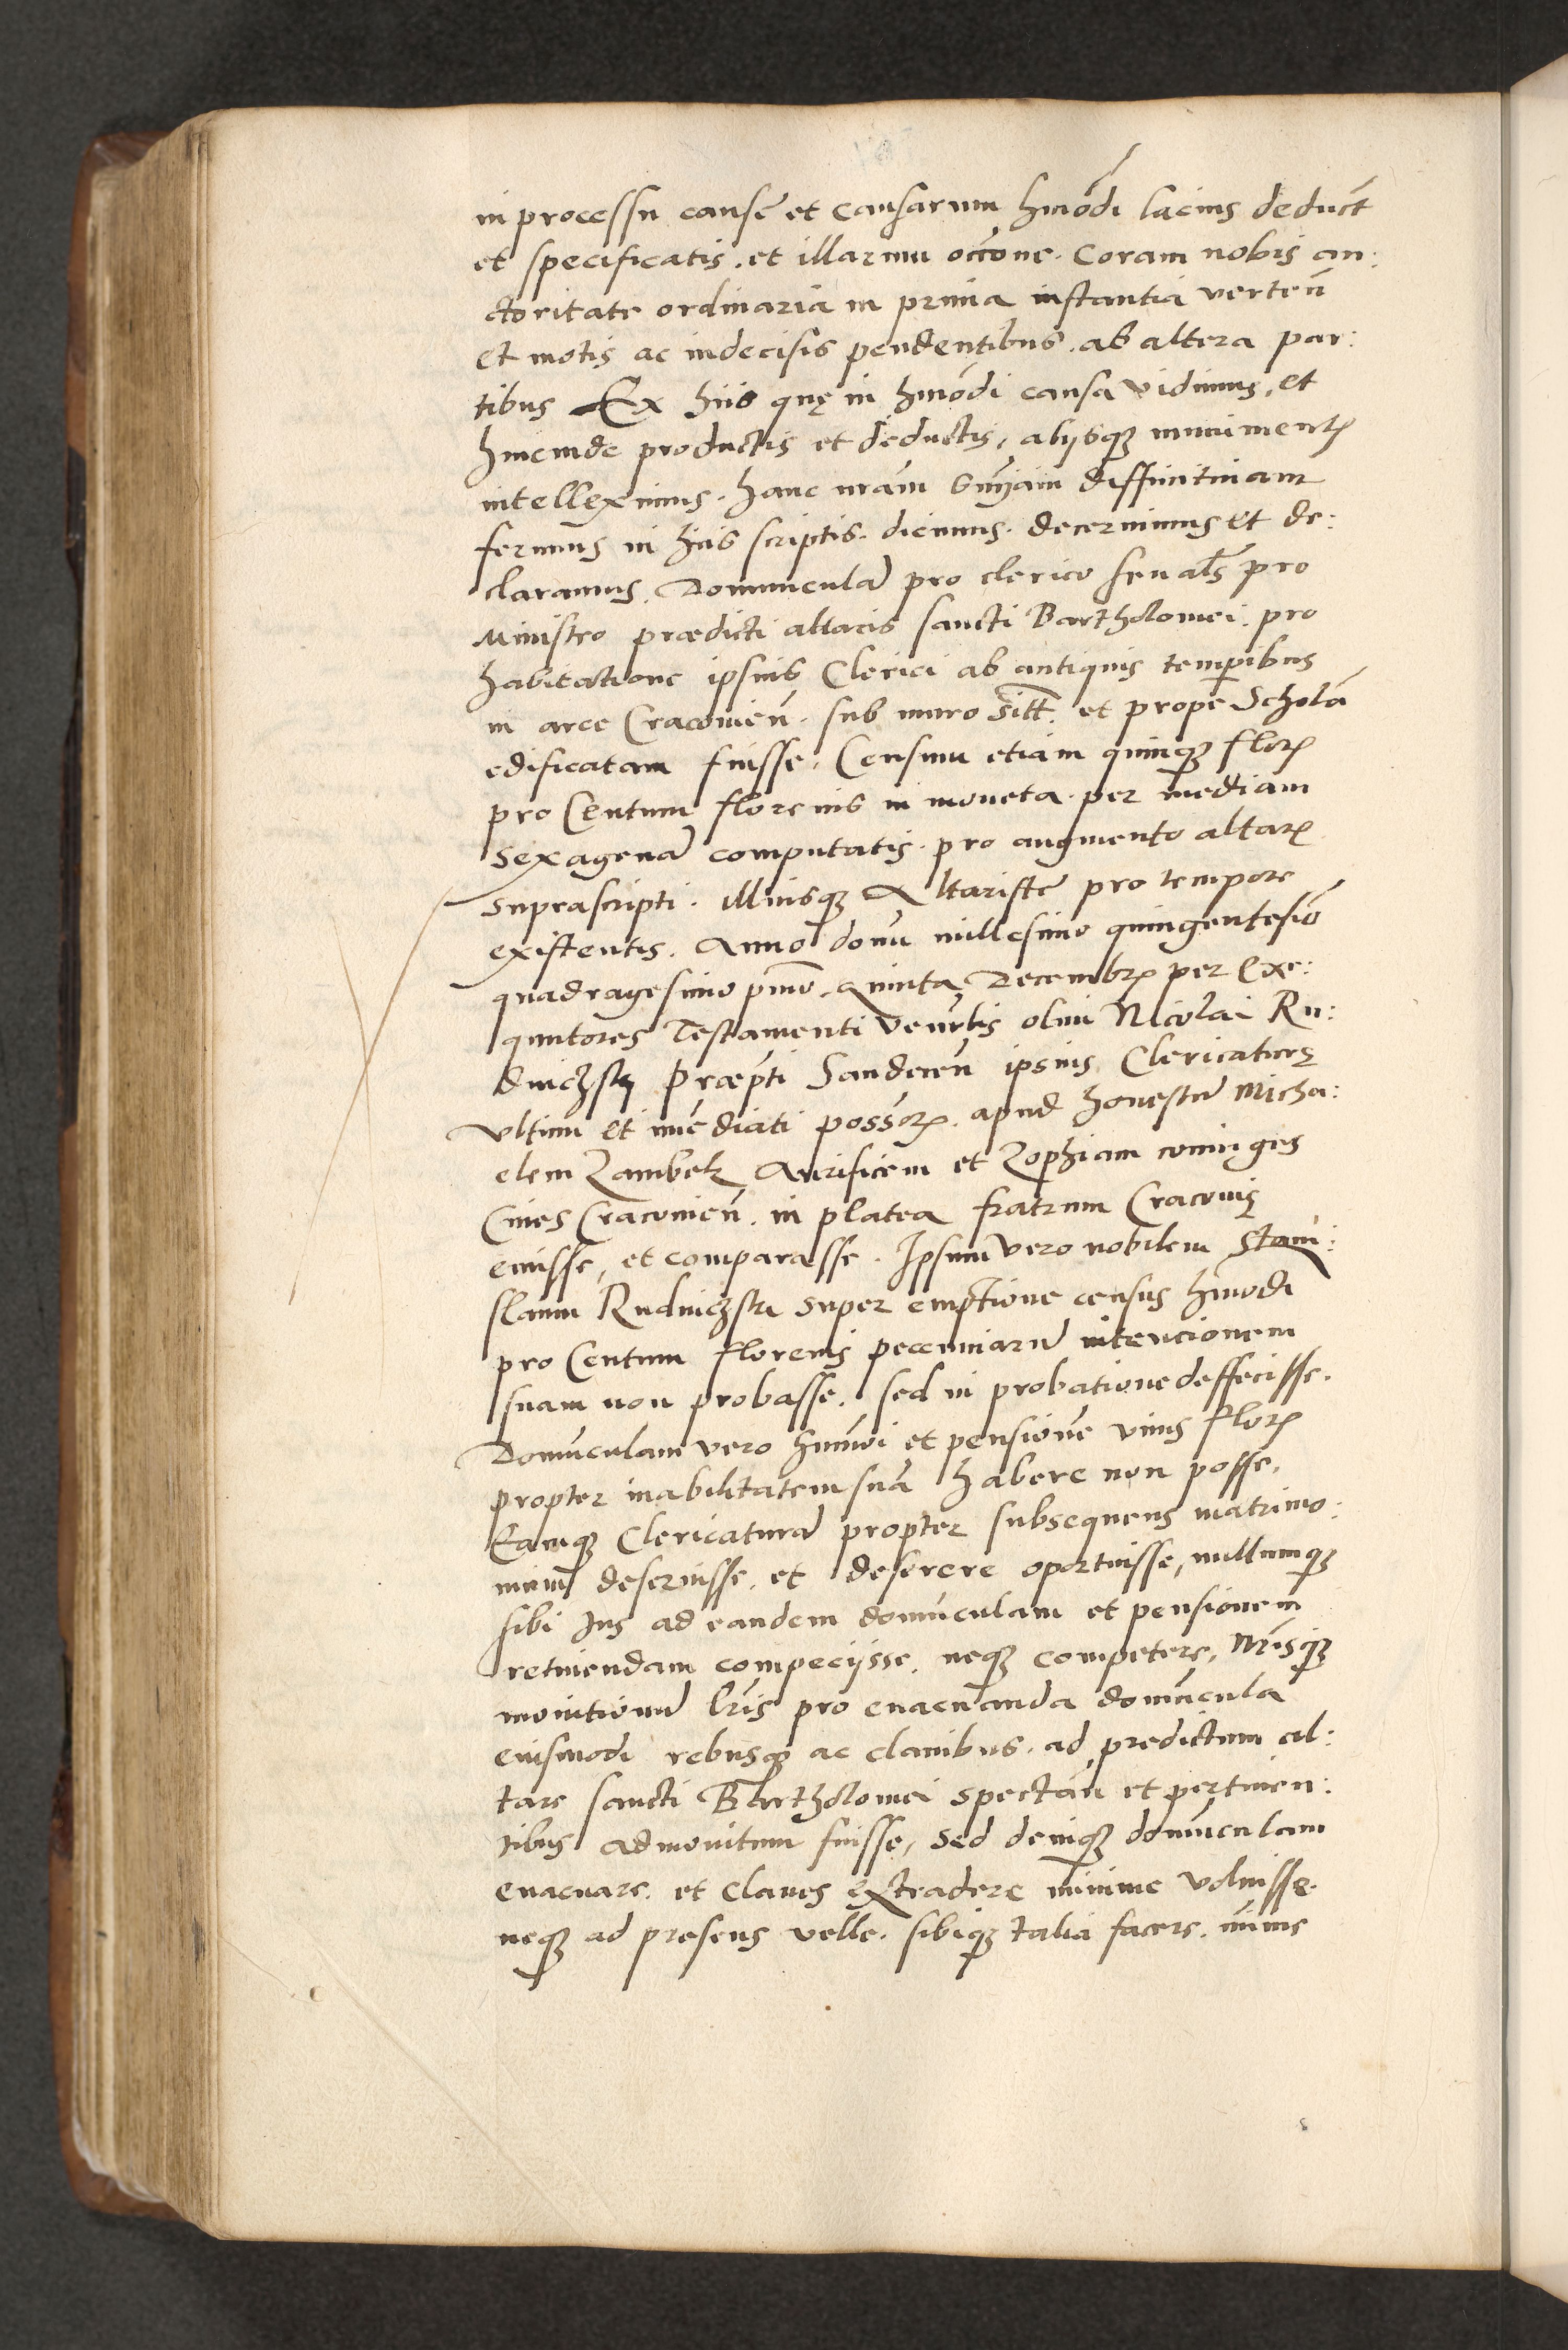 in processu causę et causarum hmōdi lacius deduct
et specificatis. et illarum occōne. Coram nobis au:
ctoritate ordinaria in prima instantia verteñ
et motis ac indecisis pendentibus. ab altera par:
tibus Ex hiis quę in hmōdi causa vidimus, et
hincinde productis et deductis, alijsq₃ muniment
intelleximus. hanc nr̄am sn̄iam diffinitinam
ferimus in hiis scriptis. dicimus. decernimus et de:
claramus. Domunculā pro clerico seu al̄s pro
Ministro prædicti altaris sancti Bartholomei. pro
habitatione ipsius Clerici ab antiquis temporibus
in arce Cracouieñ. sub muro sitt. et prope Scholā
edificatam fuisse. Censum etiam quinq₃ flor
pro Centum florenis in moneta. per mediam
sexagenā computatis. pro augmento altar
suprascripti. illiusq₃ Altaristę pro tempore
existentis. Anno domi millesimo quingentesiō
quadragesimo pmō. Quinta Decembr per Exe:
quutores Testamenti Venerblis olim Nicolai Ru:
dniczsky Præpti Sandeceñ ipsius Clericaturę
vltimi et imēdiati possor. apud honestū Micha:
elem Zambek Aurificem et Zophiam coniuges
Ciues Cracouieñ. in platea fratrum Cracouię
emisse, et comparasse. Ipsum vero nobilem Stani:
slaum Rudniczski super emptione census hmōdi
pro Centum florenis pecuniarū intencionem
suam non probasse. sed in probatione deffecisse.
Domūculam vero hmōi et pensionē vnius flor
propter inabilitatem suā habere non posse.
Eamq₃ Clericaturā propter subsequens matrimo:
nium deseruisse. et deserere oportuisse, nullumq₃
sibi Ius ad eandem domūculam et pensionem
retinendam competijsse. neq₃ competere, Nr̄isq₃
monitionū lris pro euacuanda domūcula
eiusmodi rebusq₃ ac clauibus. ad predictum al:
tare sancti Bartholomei spectāñ et pertinen:
tibus admonitum fuisse, sed deniq₃ domūculam
euacuare. et claues extradere minime voluisse.
neq₃ ad presens velle. sibiq₃ talia facere. minus